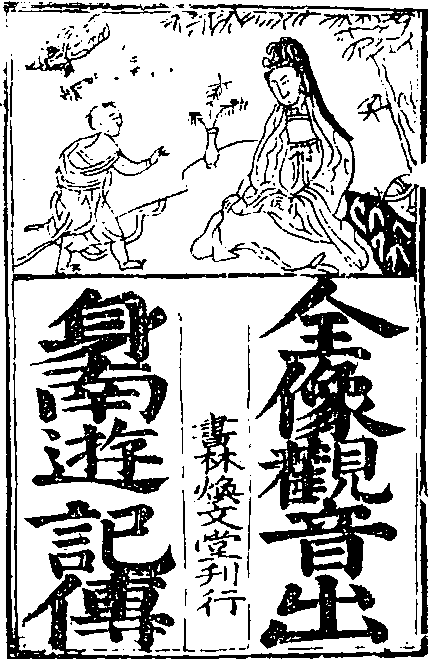 全像觀音出
身南遊記傳
書林煥文堂刊行